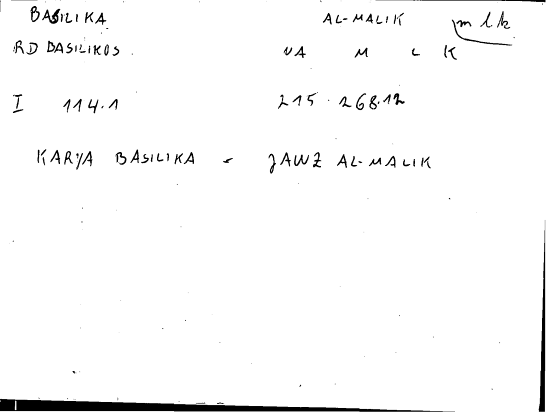 BASILIKA AL-MALIK mlk
RD BASILIKOS VA M L K
I 114.1 215.268.12
KARYA BASILIKA - JAWZ AL-MALIK